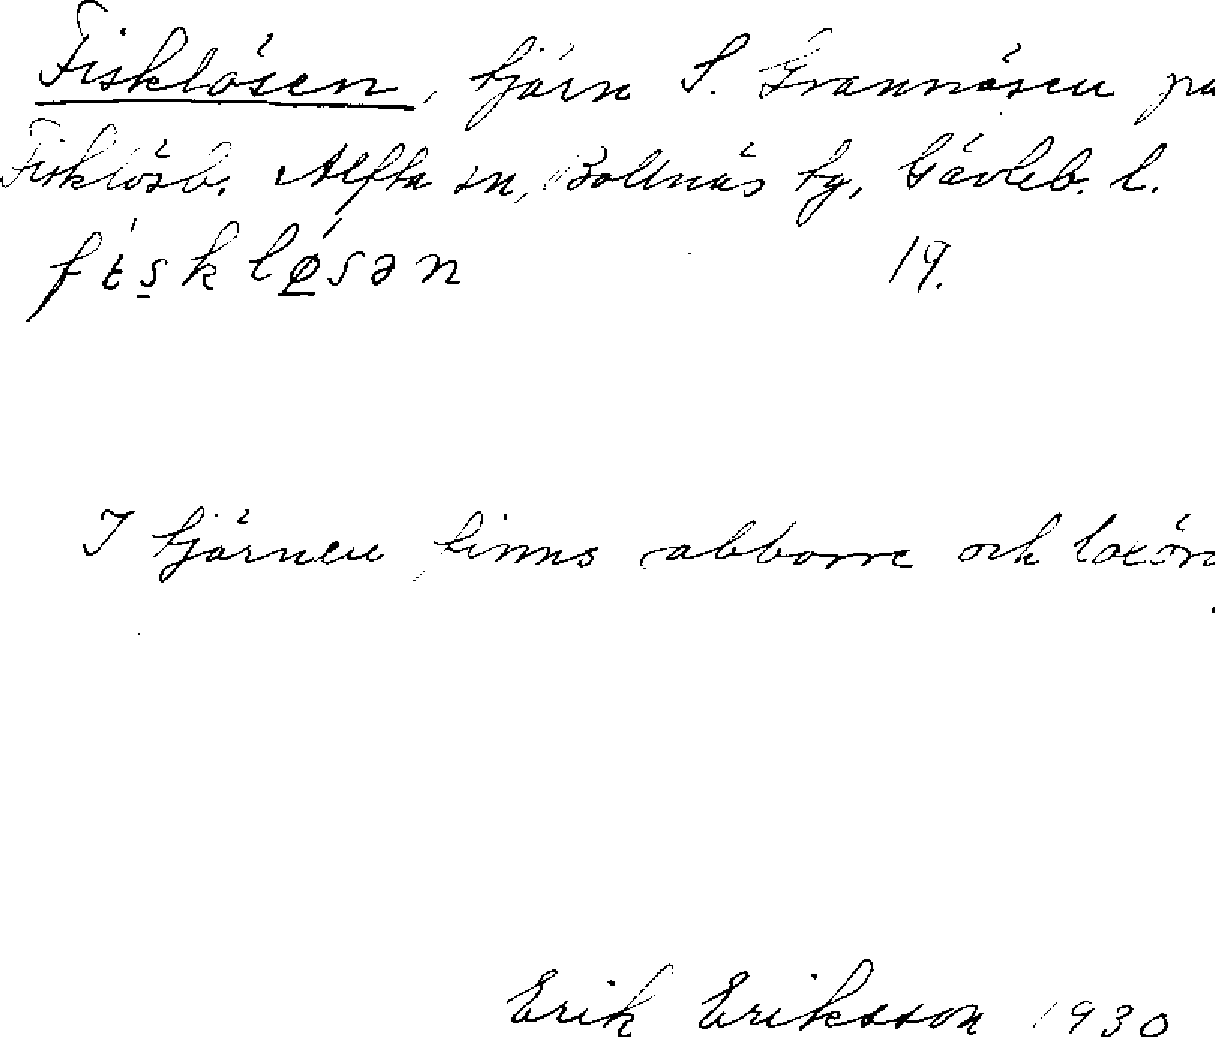 Fisklösen, tjärn S. Grannåsen på
Fisklösb. Alfta sn, Bollnäs tg, Gävleb. l.
físklǿ̱sən 19.
I tjärnen finns abborre och
Erik Eriksson 1930